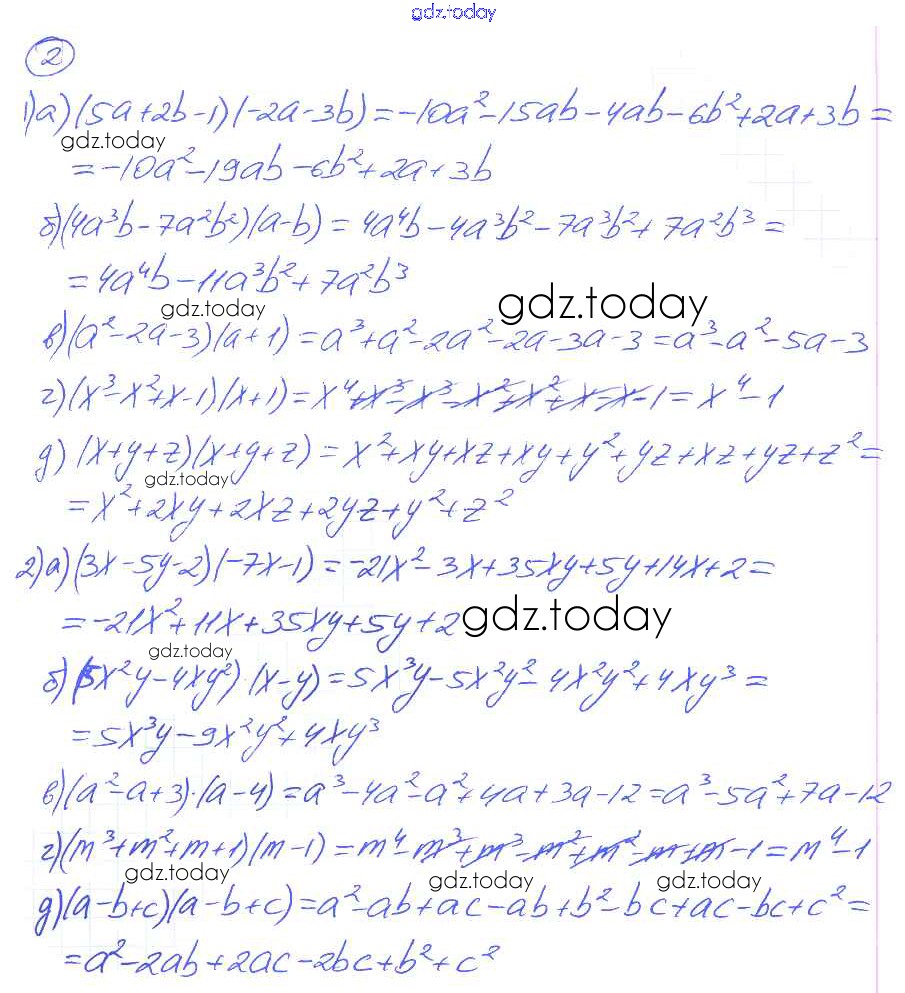 gdz.today
2
1)а)(5a+2b-1)(-2a-3b)=-10a²-15ab-4ab-6b²+2a+3b=
gdz.today
=-10a²-19ab-6b²+2a+3b
б)(4a³b-7a²b²)(a-b)=4a⁴b-4a³b²-7a³b²+7a²b³=
=4a⁴b-11a³b²+7a²b³
gdz.today
gdz.today
в)(a²-2a-3)(a+1)=a³+a²-2a²-2a-3a-3=a³-a²-5a-3
г)(x³-x²+x-1)(x+1)=x⁴+x³-x³-x²+x²+x-x-1=x⁴-1
д)(x+y+z)(x+y+z)=x²+xy+xz+xy+y²+yz+xz+yz+z²=
gdz.today
=x²+2xy+2xz+2yz+y²+z²
2)а)(3x-5y-2)(-7x-1)=-21x²-3x+35xy+5y+14x+2=
=-21x²+11x+35xy+5y+2
gdz.today
gdz.today
б)(5x²y-4xy²)·(x-y)=5x³y-5x²y²-4x²y²+4xy³=
=5x³y-9x²y²+4xy³
в)(a²-a+3)·(a-4)=a³-4a²-a²+4a+3a-12=a³-5a²+7a-12
г)(m³+m²+m+1)(m-1)=m⁴-m³+m³-m²+m²-m+m-1=m⁴-1
gdz.today
gdz.today
gdz.today
д)(a-b+c)(a-b+c)=a²-ab+ac-ab+b²-bc+ac-bc+c²=
=a²-2ab+2ac-2bc+b²+c²